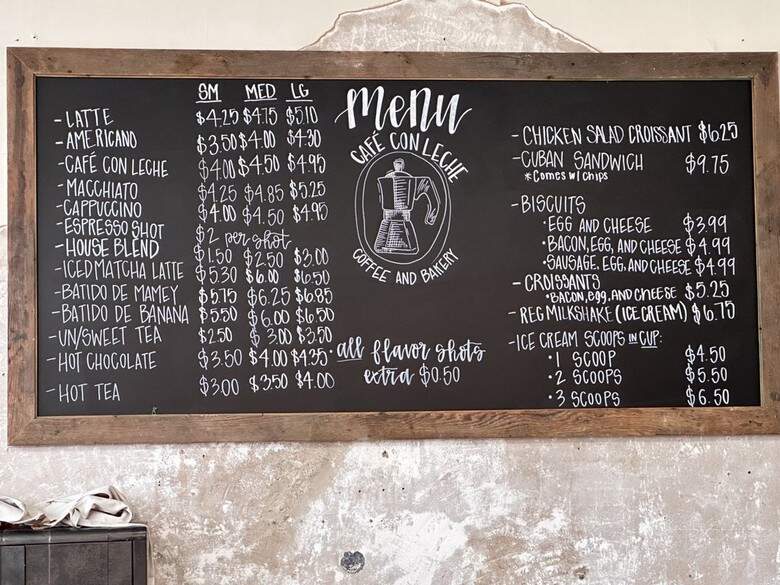 SM MED LG
- LATTE $4.25 $4.75 $5.10
- AMERICANO $3.50 $4.00 $4.30
- CAFÉ CON LECHE $4.00 $4.50 $4.95
- MACCHIATO $4.25 $4.85 $5.25
- CAPPUCCINO $4.00 $4.50 $4.95
- ESPRESSO SHOT $2 per shot
- HOUSE BLEND $1.50 $2.50 $3.00
- ICED MATCHA LATTE $5.30 $6.00 $6.50
- BATIDO DE MAMEY $5.75 $6.25 $6.85
- BATIDO DE BANANA $5.50 $6.00 $6.50
- UN/SWEET TEA $2.50 $3.00 $3.50
- HOT CHOCOLATE $3.50 $4.00 $4.35
- HOT TEA $3.00 $3.50 $4.00
Menu
CAFÉ CON LECHE
COFFEE AND BAKERY
• all flavor shots
extra $0.50
- CHICKEN SALAD CROISSANT $6.25
- CUBAN SANDWICH $9.75
*Comes w/ chips
- BISCUITS
• EGG AND CHEESE $3.99
• BACON, EGG, AND CHEESE $4.99
• SAUSAGE, EGG, AND CHEESE $4.99
- CROISSANTS
• BACON, EGG, AND CHEESE $5.25
- REG MILKSHAKE (ICE CREAM) $6.75
- ICE CREAM SCOOPS IN CUP:
• 1 SCOOP $4.50
• 2 SCOOPS $5.50
• 3 SCOOPS $6.50